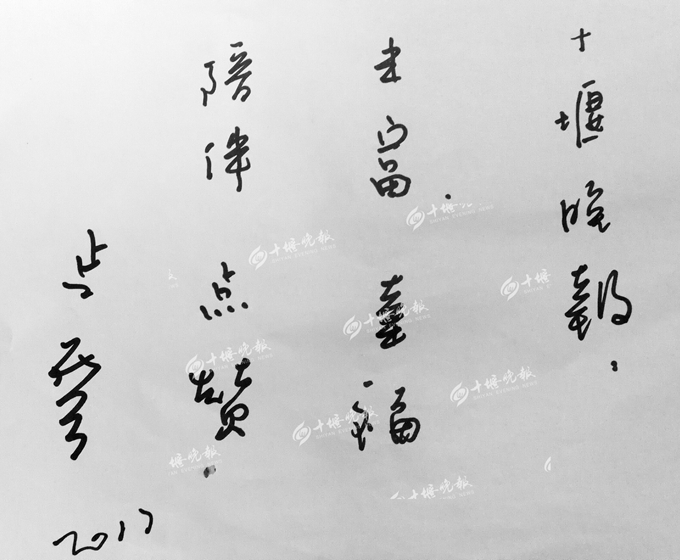 十堰晚報:
丰富·幸福
陪伴点赞.
占
2017
十堰晚报
十堰晚报
十堰晚报
十堰晚报
十堰晚报
十堰晚报